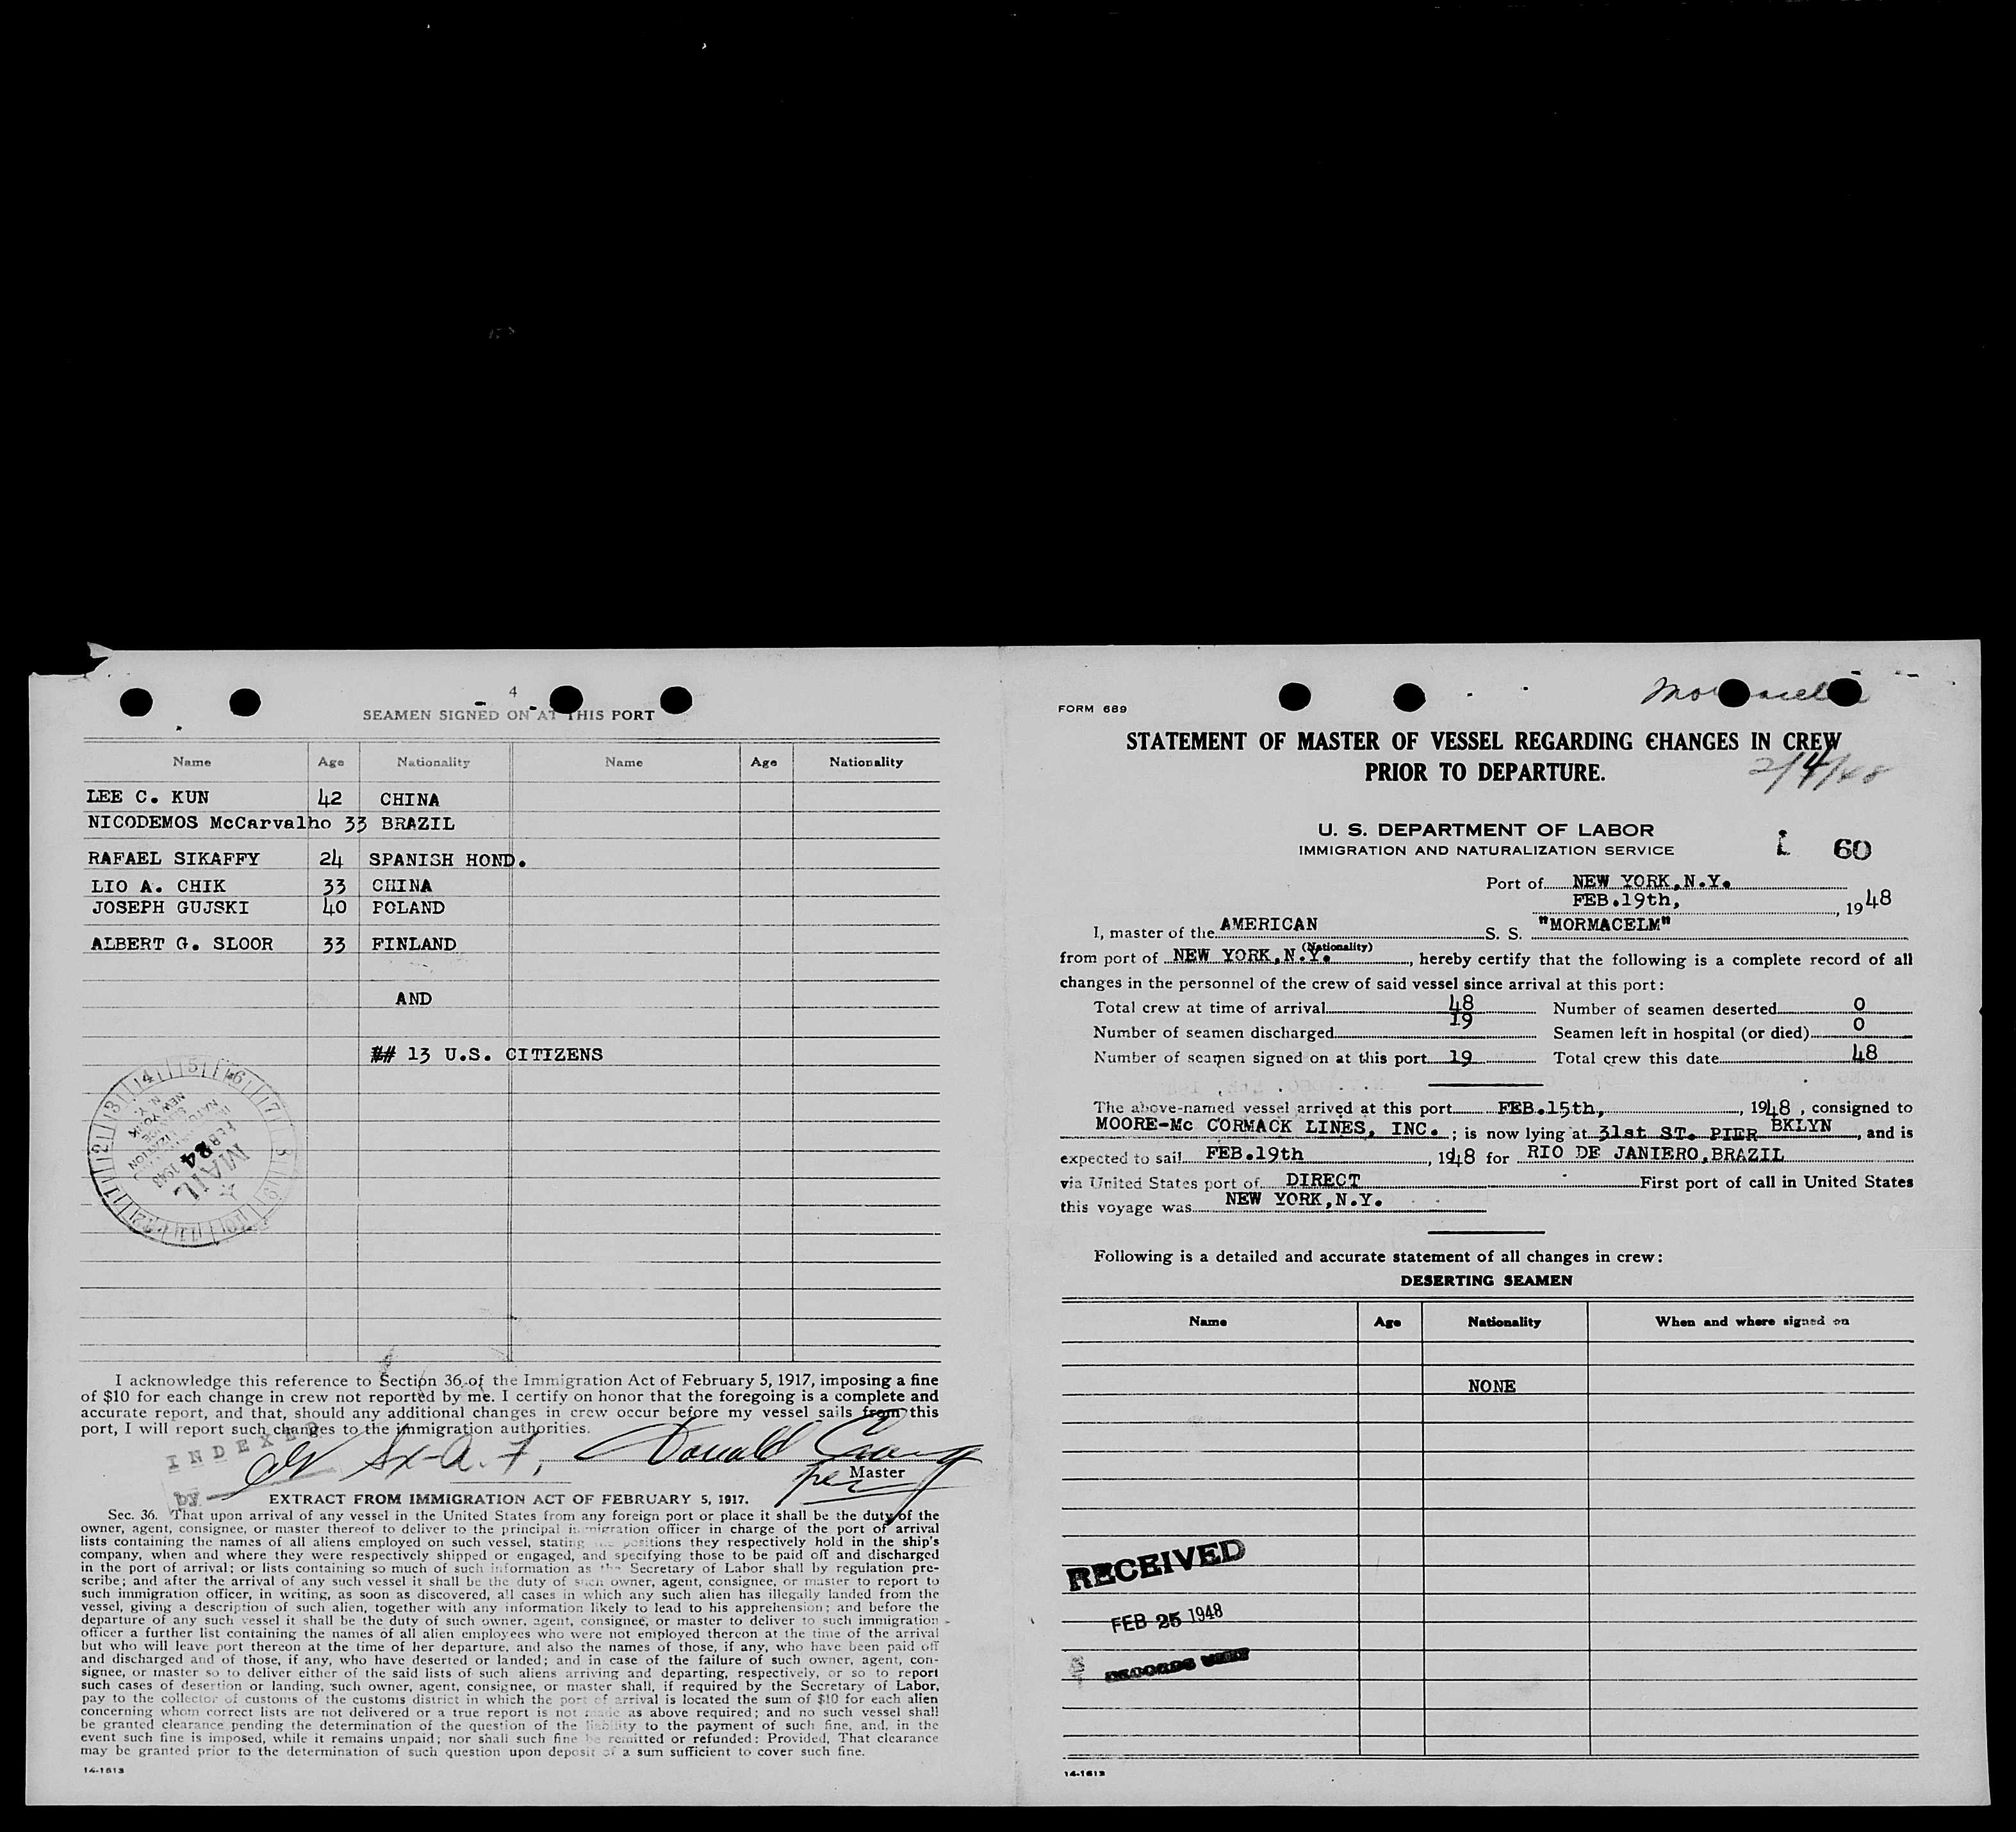 4
SEAMEN SIGNED ON AT THIS PORT
Name Age Nationality Name Age Nationality
LEE C. KUN 42 CHINA
NICODEMOS McCarvalho 33 BRAZIL
RAFAEL SIKAFFY 24 SPANISH HOND.
LIO A. CHIK 33 CHINA
JOSEPH GUJSKI 40 POLAND
ALBERT G. SLOOR 33 FINLAND
AND
## 13 U.S. CITIZENS
MAIL
FEB 24 1948
NEW YORK
I acknowledge this reference to Section 36 of the Immigration Act of February 5, 1917, imposing a fine
of $10 for each change in crew not reported by me. I certify on honor that the foregoing is a complete and
accurate report, and that, should any additional changes in crew occur before my vessel sails from this
port, I will report such changes to the immigration authorities.
INDEXED
by
Donald
per Master
EXTRACT FROM IMMIGRATION ACT OF FEBRUARY 5, 1917.
Sec. 36. That upon arrival of any vessel in the United States from any foreign port or place it shall be the duty of the
owner, agent, consignee, or master thereof to deliver to the principal immigration officer in charge of the port of arrival
lists containing the names of all aliens employed on such vessel, stating the positions they respectively hold in the ship's
company, when and where they were respectively shipped or engaged, and specifying those to be paid off and discharged
in the port of arrival; or lists containing so much of such information as the Secretary of Labor shall by regulation pre-
scribe; and after the arrival of any such vessel it shall be the duty of such owner, agent, consignee, or master to report to
such immigration officer, in writing, as soon as discovered, all cases in which any such alien has illegally landed from the
vessel, giving a description of such alien, together with any information likely to lead to his apprehension; and before the
departure of any such vessel it shall be the duty of such owner, agent, consignee, or master to deliver to such immigration
officer a further list containing the names of all alien employees who were not employed thereon at the time of the arrival
but who will leave port thereon at the time of her departure, and also the names of those, if any, who have been paid off
and discharged and of those, if any, who have deserted or landed; and in case of the failure of such owner, agent, con-
signee, or master so to deliver either of the said lists of such aliens arriving and departing, respectively, or so to report
such cases of desertion or landing, such owner, agent, consignee, or master shall, if required by the Secretary of Labor,
pay to the collector of customs of the customs district in which the port of arrival is located the sum of $10 for each alien
concerning whom correct lists are not delivered or a true report is not made as above required; and no such vessel shall
be granted clearance pending the determination of the question of the liability to the payment of such fine, and, in the
event such fine is imposed, while it remains unpaid; nor shall such fine be remitted or refunded: Provided, That clearance
may be granted prior to the determination of such question upon deposit of a sum sufficient to cover such fine.
14-1613
FORM 689
STATEMENT OF MASTER OF VESSEL REGARDING CHANGES IN CREW
PRIOR TO DEPARTURE.
2/4/48
U. S. DEPARTMENT OF LABOR
IMMIGRATION AND NATURALIZATION SERVICE
60
Port of NEW YORK, N.Y.
FEB.19th, 1948
I, master of the AMERICAN S. S. "MORMACELM"
(Nationality)
from port of NEW YORK, N.Y., hereby certify that the following is a complete record of all
changes in the personnel of the crew of said vessel since arrival at this port:
Total crew at time of arrival 48 Number of seamen deserted 0
Number of seamen discharged 19 Seamen left in hospital (or died) 0
Number of seamen signed on at this port 19 Total crew this date 48
The above-named vessel arrived at this port FEB.15th, 1948, consigned to
MOORE-Mc CORMACK LINES, INC. ; is now lying at 31st ST. PIER BKLYN, and is
expected to sail FEB.19th, 1948 for RIO DE JANIERO, BRAZIL
via United States port of DIRECT First port of call in United States
this voyage was NEW YORK, N.Y.
Following is a detailed and accurate statement of all changes in crew:
DESERTING SEAMEN
Name Age Nationality When and where signed on
NONE
RECEIVED
FEB 25 1948
RECORDS UNIT
14-1613